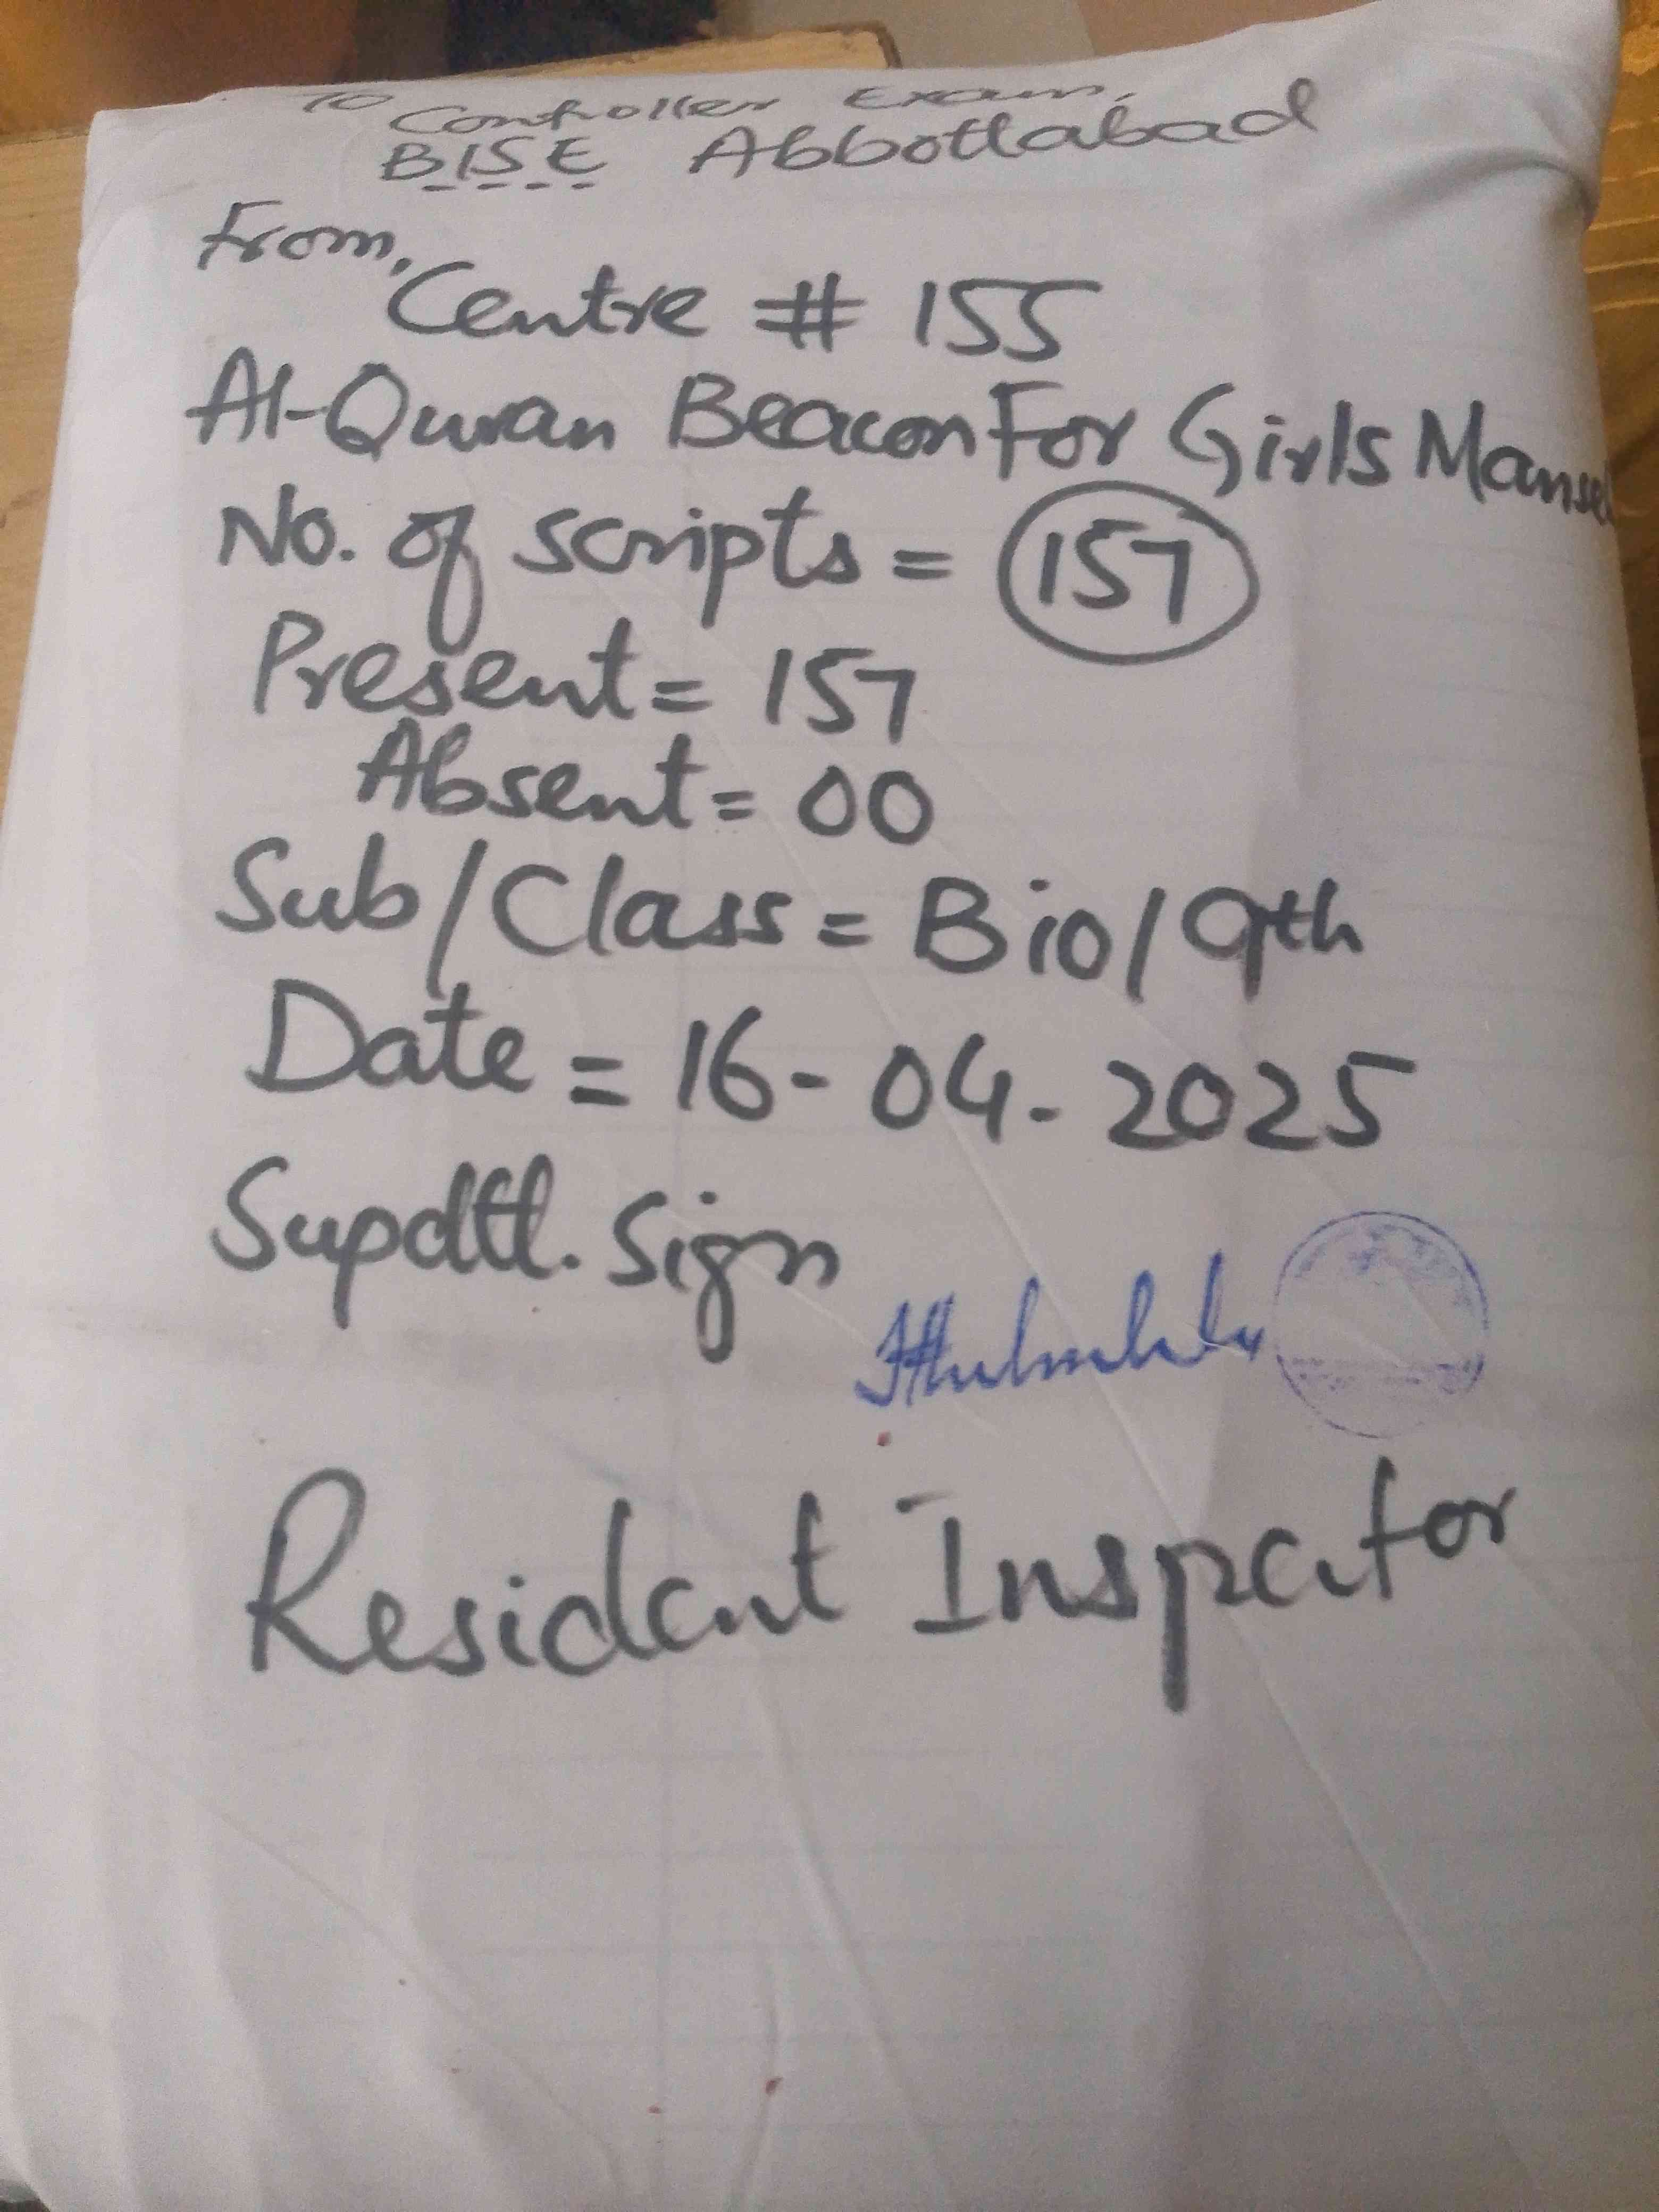 To
Controller Exam,
BISE Abbottabad
From,
Centre # 155
Al-Quran Beacon For Girls Manse
No. of scripts = 157
Present = 157
Absent = 00
Sub/Class = Bio/9th
Date = 16-04-2025
Supdtt. Sign
Resident Inspector